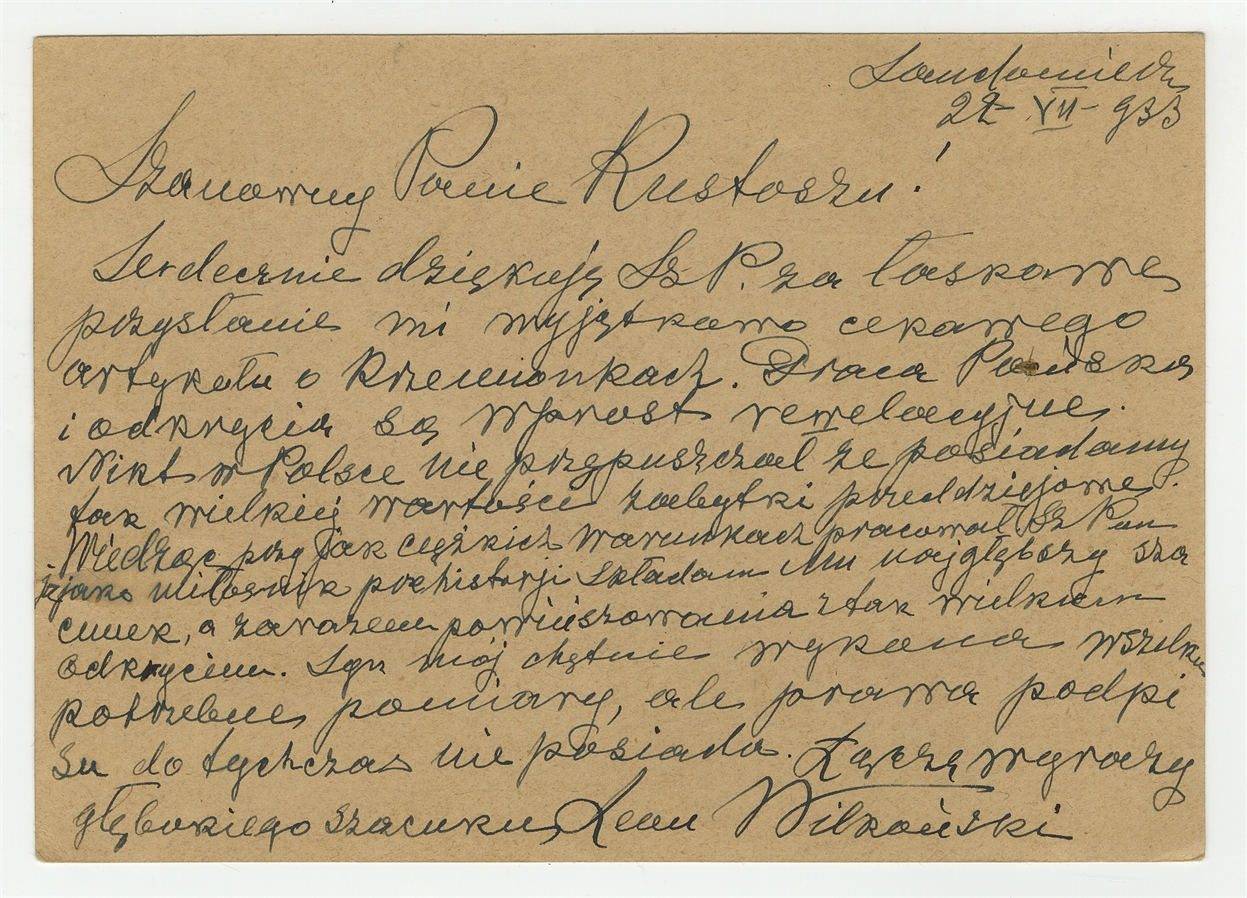 Sandomierz
22-VII-933
Szanowny Panie Kustoszu!
Serdecznie dziękuję Sz P. za łaskawe
przysłanie mi wyjątkowo cekawego
artykułu o Krzemionkach. Praca Pańska
i odkrycia są wprost rewelacyjne.
Nikt w Polsce nie przypuszczał że posiadamy
tak wielkiej wartości zabytki przeddziejowe.
Wiedząc przy jak ciężkich warunkach pracował Sz Pan
jako miłośnik prehistorji składam Mu najgłębszy sza
cunek, a zarazem powinszowania z tak wielkiem
odkryciem. Syn mój chętnie wykona wszelkie
potrzebne pomiary, ale prawa podpi
su do tychczas nie posiada. Łączę wyrazy
głębokiego szacunku Leon Wilkoński